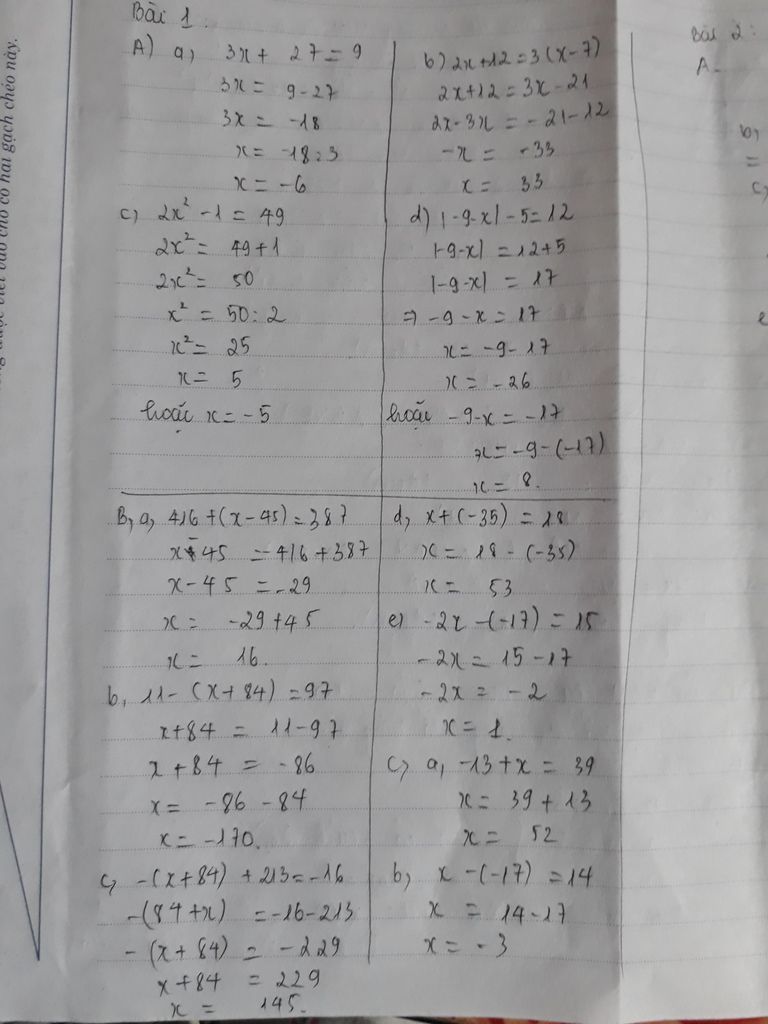 Bài 1.
A) a, 3x + 27 = 9
3x = 9-27
3x = -18
x = -18:3
x = -6
b) 2x+12 = 3(x-7)
2x+12 = 3x-21
2x-3x = -21-12
-x = -33
x = 33
c, 2x² - 1 = 49
2x² = 49+1
2x² = 50
x² = 50:2
x² = 25
x = 5
hoặc x = -5
d) |-9-x| - 5 = 12
|-9-x| = 12+5
|-9-x| = 17
=> -9-x = 17
x = -9-17
x = -26
hoặc -9-x = -17
x = -9-(-17)
x = 8.
B, a, 416 + (x-45) = 387
x-45 = -416+387
x-45 = -29
x = -29+45
x = 16.
b, 11-(x+84) = 97
x+84 = 11-97
x+84 = -86
x = -86-84
x = -170.
c, -(x+84) + 213 = -16
-(84+x) = -16-213
-(x+84) = -229
x+84 = 229
x = 145.
d, x+(-35) = 18
x = 18-(-35)
x = 53
e) -2x-(-17) = 15
-2x = 15-17
-2x = -2
x = 1.
C, a, -13+x = 39
x = 39+13
x = 52
b, x-(-17) = 14
x = 14-17
x = -3
Bài 2:
A-
b,
=
c,
e
hai gạch chéo này.